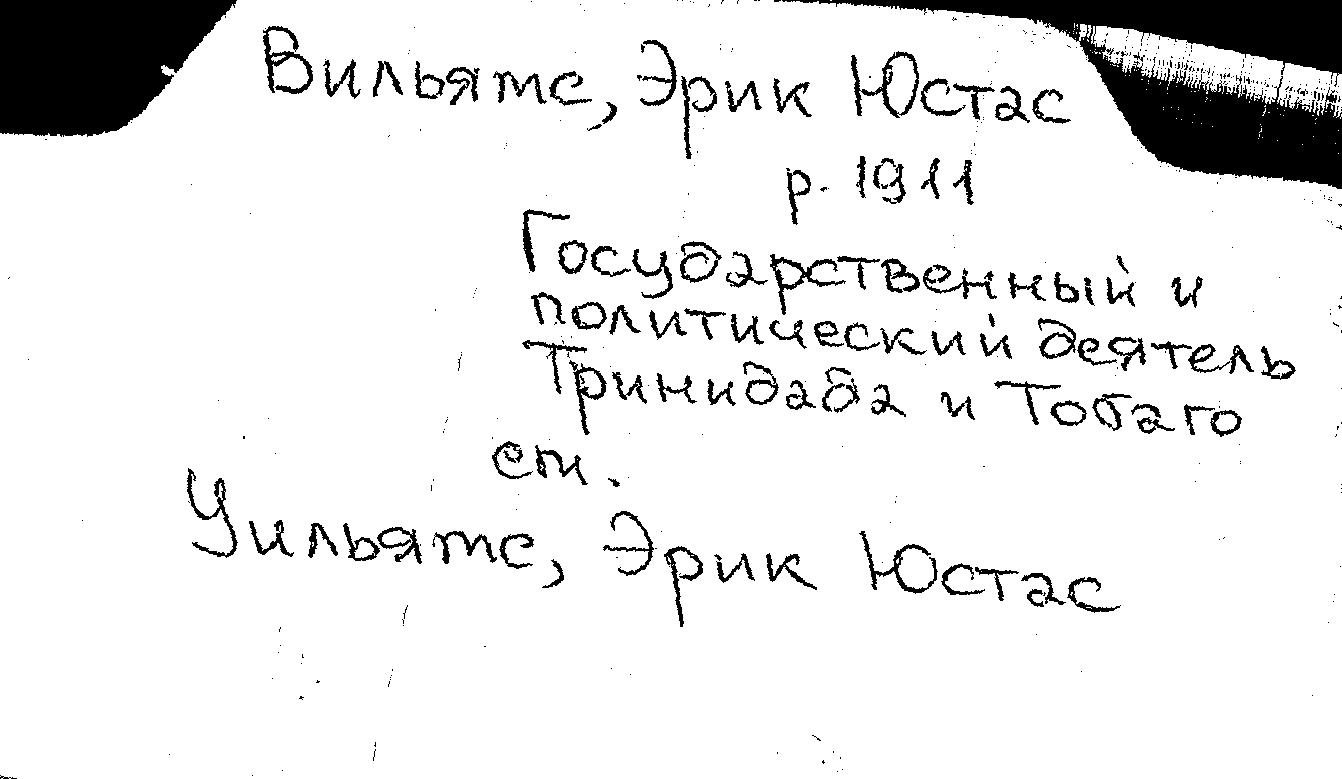 Вильямс, Эрик Юстас
р. 1911
Государственный и
политический деятель
Тринидада и Тобаго
см.
Уильямс, Эрик Юстас